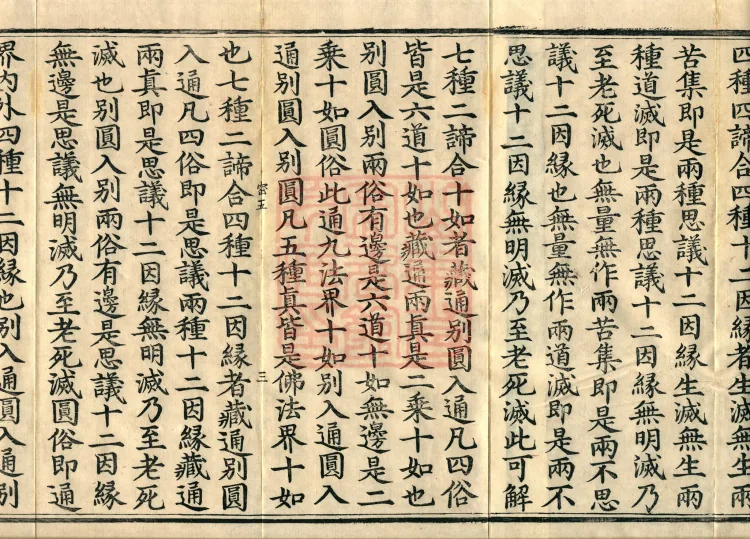 四種四諦合四種十二因緣者生滅無生
苦集即是兩種思議十二因緣生滅無生兩
種道滅即是兩種思議十二因緣無明滅乃
至老死滅也無量無作兩苦集即是兩不思
議十二因緣也無量無作兩道滅即是兩不
思議十二因緣無明滅乃至老死滅此可解
七種二諦合十如者藏通別圓入通凡四俗
皆是六道十如也藏通兩真是二乘十如也
別圓入別兩俗有邊是六道十如無邊是二
乘十如圓俗此通九法界十如別入通圓入
通別圓入別圓凡五種真皆是佛法界十如
也七種二諦合四種十二因緣者藏通別圓
入通凡四俗即是思議兩種十二因緣藏通
兩真即是思議十二因緣無明滅乃至老死
滅也別圓入別兩俗有邊是思議十二因緣
無邊是思議無明滅乃至老死滅圓俗即通
界內外四種十二因緣也別入通圓入通別
三